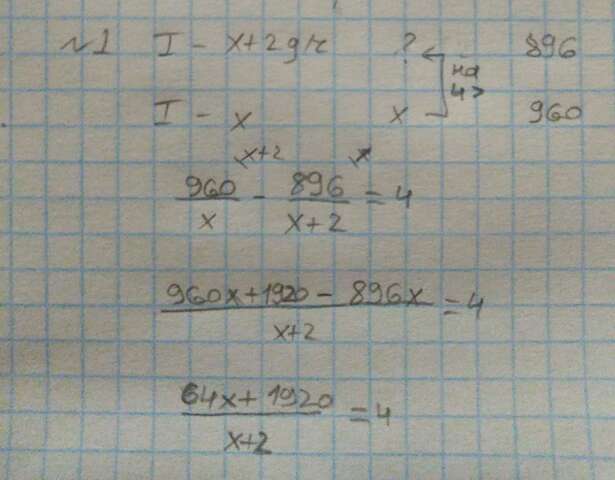 №1 I - x+2 дет ? 896
на 4>
I - x x 960
960/x \x+2 - 896/x+2 \x = 4
960x+1920-896x/x+2 = 4
64x+1920/x+2 = 4